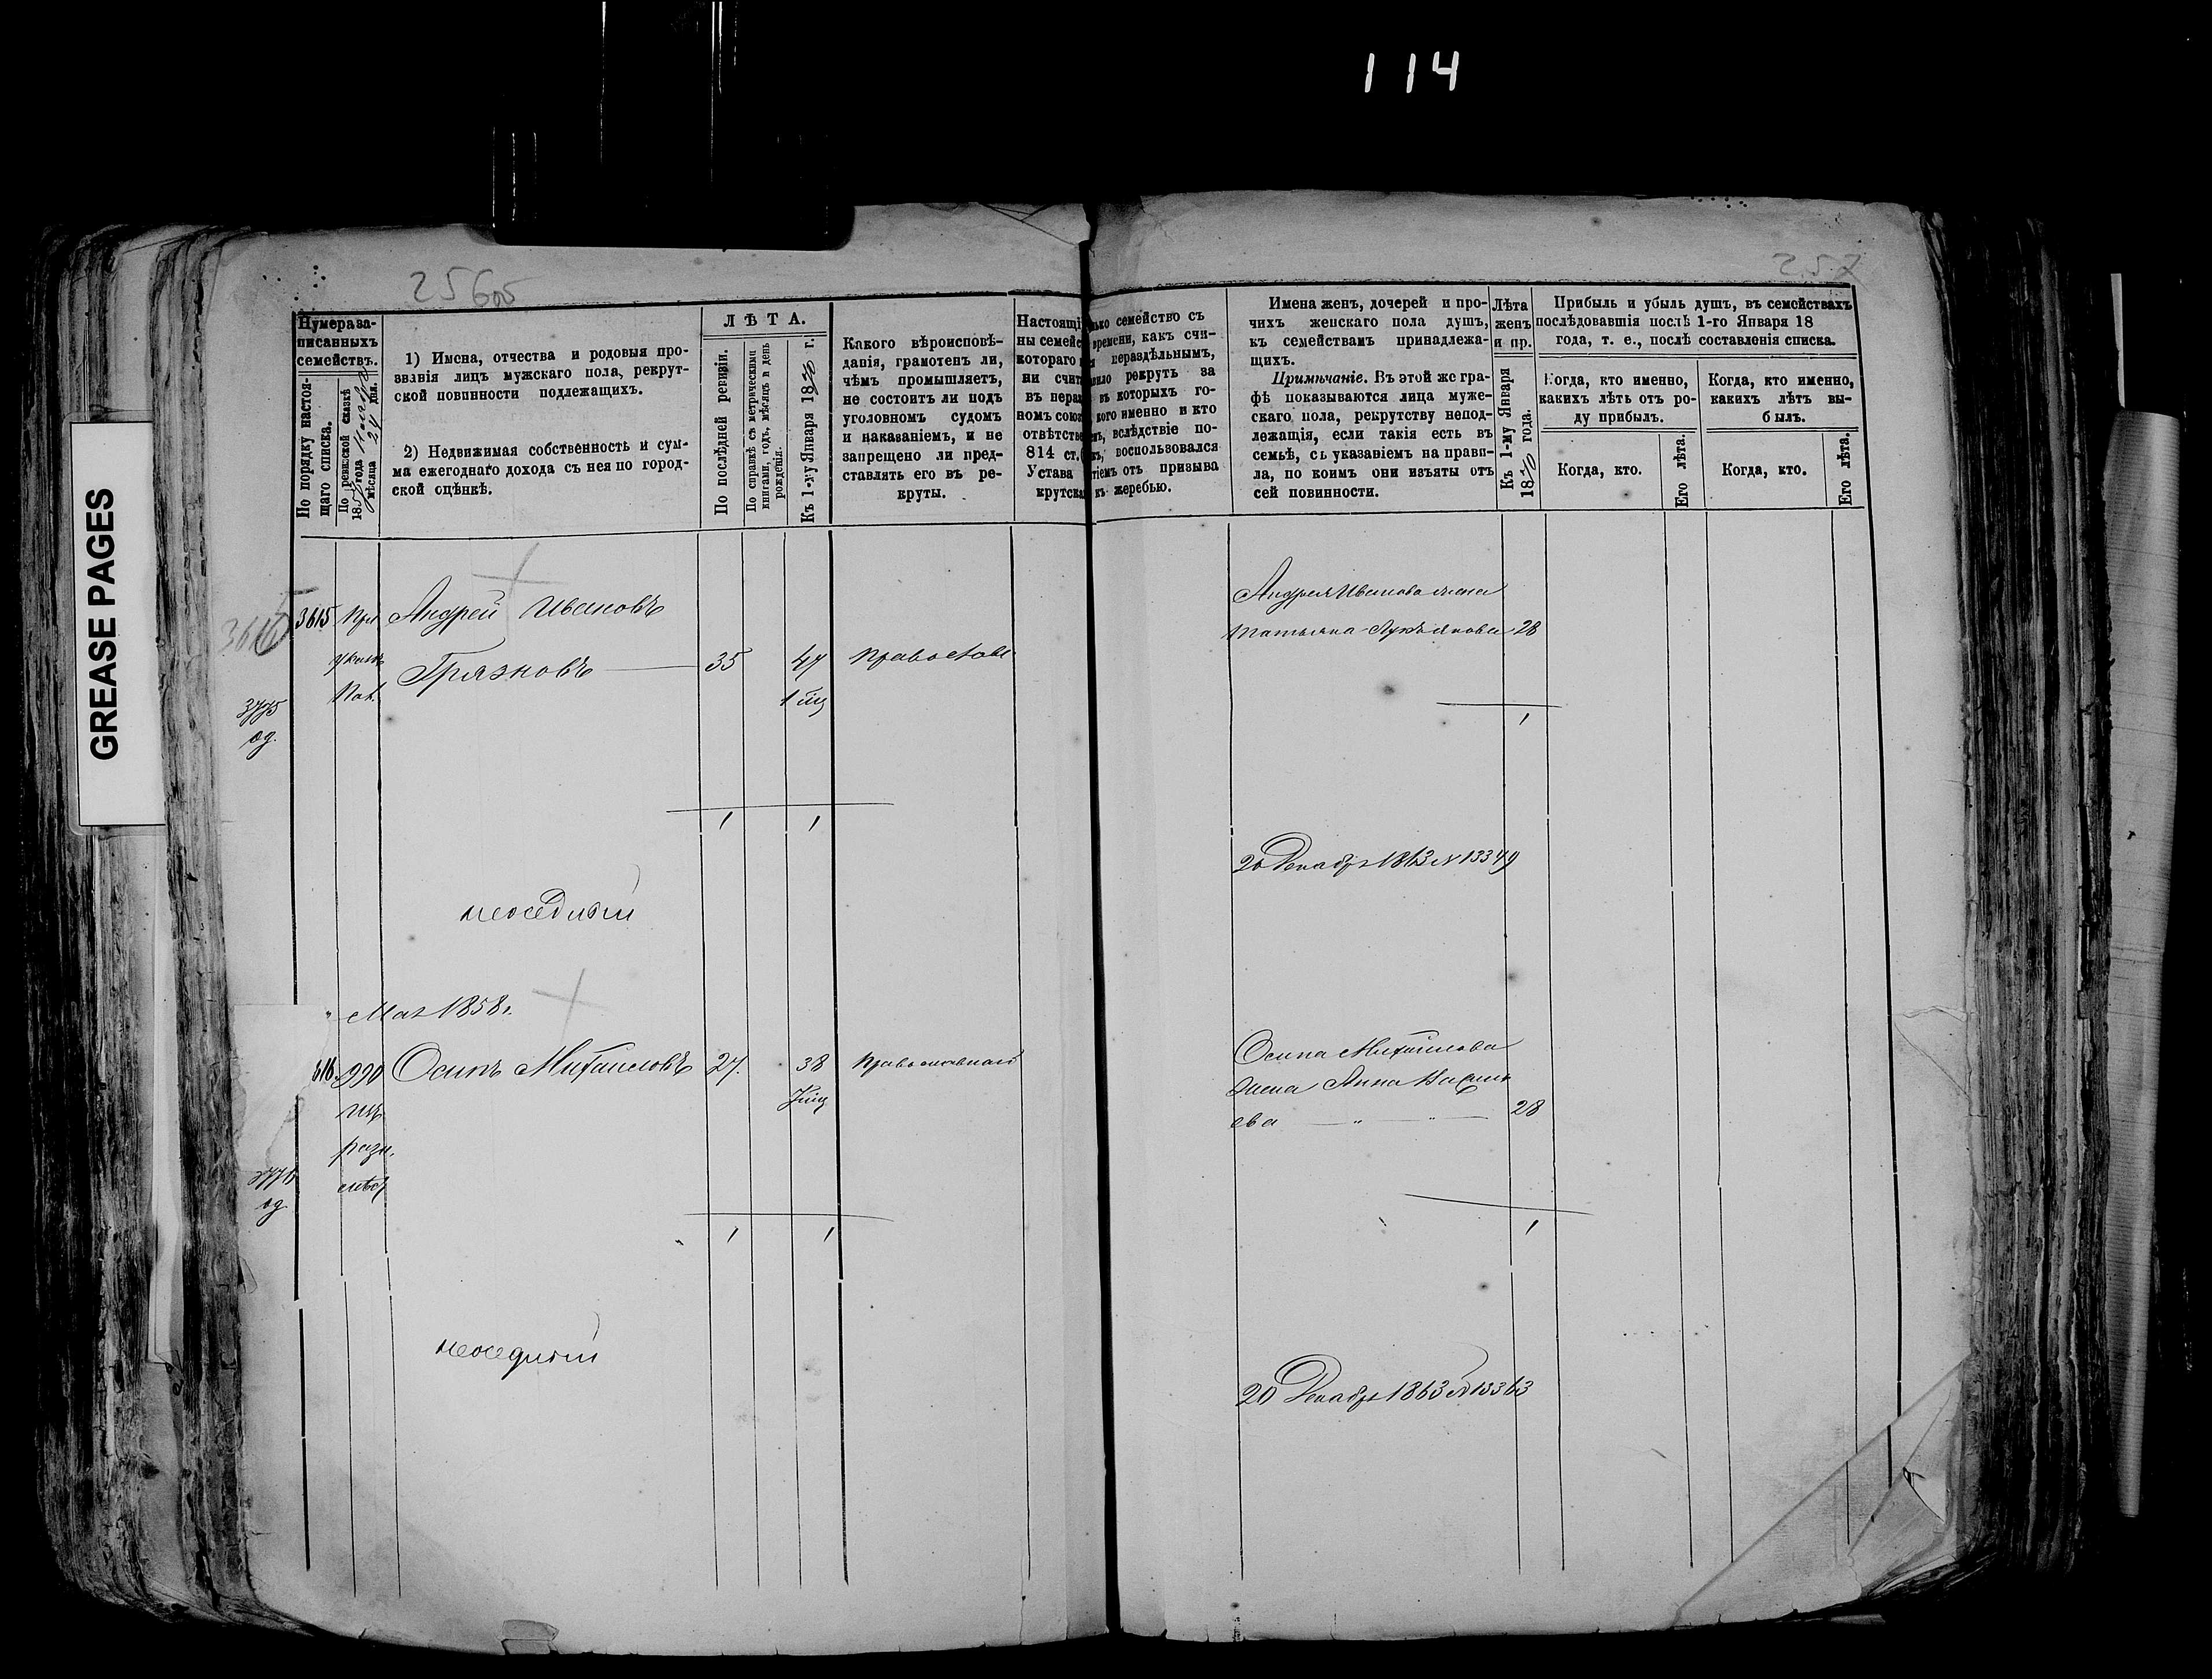 114
GREASE PAGES
256 об
257
Нумера за-
писанныхъ
семействъ.
По порядку настоя-
щаго списка.
По ревизской сказкѣ
185 года
мѣсяца 24 дня.
1) Имена, отчества и родовыя про-
званія лицъ мужскаго пола, рекрут-
ской повинности подлежащихъ.
2) Недвижимая собственность и сум-
ма ежегоднаго дохода съ нея по город-
ской оцѣнкѣ.
ЛѢТА.
По послѣдней ревизіи.
По справкѣ съ метрическими
книгами, годъ, мѣсяцъ и день
рожденія.
Къ 1-му Января 1870 г.
Какого вѣроисповѣ-
данія, грамотенъ ли,
чѣмъ промышляетъ,
не состоитъ ли подъ
уголовномъ судомъ
и наказаніемъ, и не
запрещено ли пред-
ставлять его въ ре-
круты.
Настоящі
ны семейс
котораго
ни счит
въ нераз
номъ союз
отвѣтстве
814 ст.
Устава
крутска
семейство съ
времени, какъ счи-
нераздѣльнымъ,
рекрутъ за
въ которыхъ го-
кого именно и кто
вслѣдствіе по-
воспользовался
отъ призыва
къ жеребью.
Имена женъ, дочерей и про-
чихъ женскаго пола душъ,
къ семействамъ принадлежа-
щихъ.
Примѣчаніе. Въ этой же гра-
фѣ показываются лица муже-
скаго пола, рекрутству непод-
лежащія, если такія есть въ
семьѣ, съ указаніемъ на прави-
ла, по коимъ они изъяты отъ
сей повинности.
Лѣта
женъ
и пр.
Къ 1-му Января
1870 года.
Прибыль и убыль душъ, въ семействахъ
послѣдовавшія послѣ 1-го Января 18
года, т. е., послѣ составленія списка.
Когда, кто именно,
какихъ лѣтъ отъ ро-
ду прибылъ.
Когда, кто именно,
каких лѣтъ вы-
былъ.
Когда, кто.
Его лѣта.
Когда, кто.
Его лѣта.
3615
3615 Андрей Ивановъ
Грязновъ 35 47
3775
од.
1 1
неоседлый
Андрея Иванова жена
Татьяна Лукьянова 28
1
20 Декабря 1863 № 13349
Мая 1858 г.
616. 990 Осипъ Михайловъ 27. 38 Православнаго
од.
1 1
неоседлый
Осипа Михайлова
жена Анна Василь
ева " " 28
1
20 Декабря 1863 № 13363